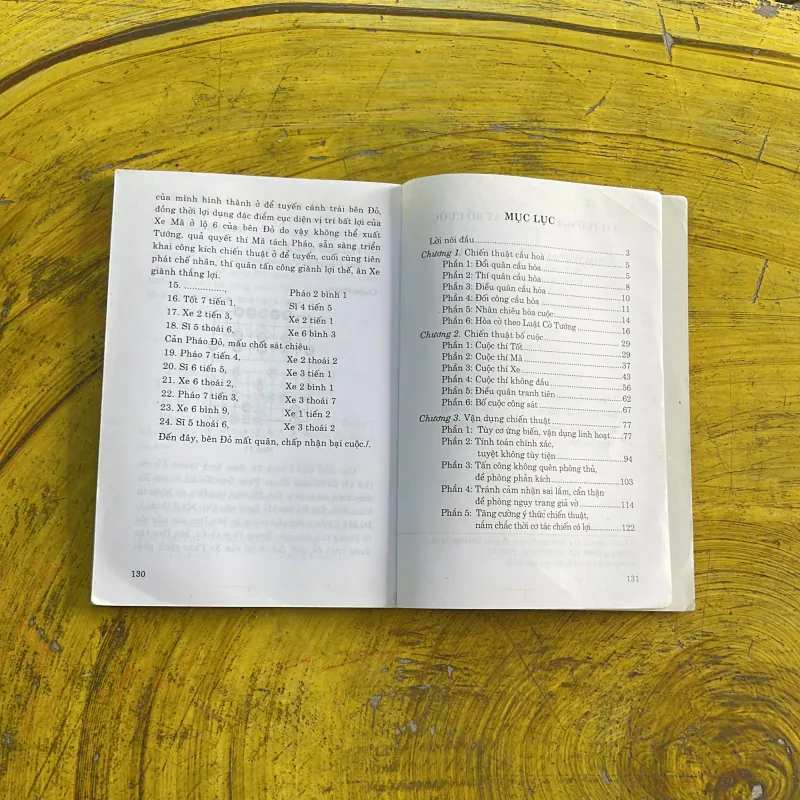 của mình hình thành ở để tuyến cánh trái bên Đỏ,
đồng thời lợi dụng đặc điểm cục diện vị trí bất lợi của
Xe Mã ở lộ 6 của bên Đỏ do vậy không thể xuất
Tướng, quả quyết thí Mã tách Pháo, sẵn sàng triển
khai công kích chiến thuật ở để tuyến, cuối cùng tiên
phát chế nhân, thí quân tấn công giành lợi thế, ăn Xe
giành thắng lợi.
15. ..............., Pháo 2 bình 1
16. Tốt 7 tiến 1, Sĩ 4 tiến 5
17. Xe 2 tiến 3, Xe 2 tiến 1
18. Sĩ 5 thoái 6, Xe 6 bình 3
Cản Pháo Đỏ, mấu chốt sát chiêu.
19. Pháo 7 tiến 4, Xe 2 thoái 2
20. Sĩ 6 tiến 5, Xe 3 tiến 1
21. Xe 6 thoái 2, Xe 2 bình 1
22. Pháo 7 tiến 3, Xe 3 thoái 7
23. Xe 6 bình 9, Xe 1 tiến 2
24. Sĩ 5 thoái 6, Xe 3 thoái 2
Đến đây, bên Đỏ mất quân, chấp nhận bại cuộc./.
130
MỤC LỤC
Lời nói đầu.................................................. 3
Chương 1. Chiến thuật cầu hoà .............................. 5
Phần 1: Đổi quân cầu hòa.................................. 5
Phần 2: Thí quân cầu hòa.................................. 5
Phần 3: Điều quân cầu hòa................................. 8
Phần 4: Đối công cầu hòa................................. 10
Phần 5: Nhàn chiêu hòa cuộc.............................. 11
Phần 6: Hòa cờ theo Luật Cờ Tướng........................ 14
Chương 2. Chiến thuật bố cuộc.............................. 16
Phần 1: Cuộc thí Tốt..................................... 29
Phần 2: Cuộc thí Mã...................................... 29
Phần 3: Cuộc thí Xe...................................... 37
Phần 4: Cuộc thí không đầu............................... 43
Phần 5: Điều quân tranh tiên............................. 56
Phần 6: Bố cuộc công sát................................. 62
67
Chương 3. Vận dụng chiến thuật ............................ 77
Phần 1: Tùy cơ ứng biến, vận dụng linh hoạt..77
Phần 2: Tính toán chính xác,
tuyệt không tùy tiện ........................ 94
Phần 3: Tấn công không quên phòng thủ,
đề phòng phản kích ......................103
Phần 4: Tránh cảm nhận sai lầm, cẩn thận
đề phòng ngụy trang giả vờ ..............114
Phần 5: Tăng cường ý thức chiến thuật,
nắm chắc thời cơ tác chiến có lợi............122
131